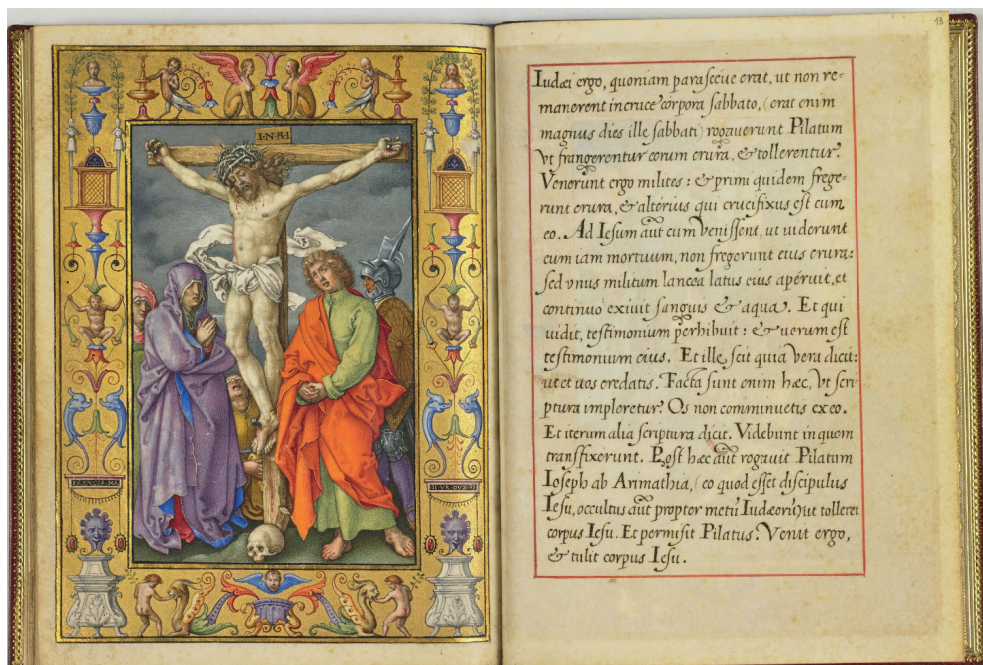 I·N·R·I
13
Iudæi ergo, quoniam parasceue erat, ut non re-
manerent in cruce corpora sabbato, (erat enim
magnus dies ille sabbati) rogauerunt Pilatum
vt frangerentur eorum crura, & tollerentur.
Venerunt ergo milites: & primi quidem frege-
runt crura, & alterius qui crucifixus est cum
eo. Ad Iesum aūt cum venissent, ut uiderunt
eum iam mortuum, non fregerunt eius crura:
sed vnus militum lancea latus eius aperuit, et
continuo exiuit sanguis & aqua. Et qui
uidit, testimonium perhibuit: & uerum est
testimonium eius. Et ille scit quia vera dicit:
ut et uos credatis. Facta sunt enim hæc, vt scri
ptura impleretur. Os non comminuetis ex eo.
Et iterum alia scriptura dicit. Videbunt in quem
transfixerunt. Post hæc aūt rogauit Pilatum
Ioseph ab Arimathia, (eo quod esset discipulus
Iesu, occultus aūt propter metū Iudæorū) ut tolleret
corpus Iesu. Et permisit Pilatus. Venit ergo,
& tulit corpus Iesu.